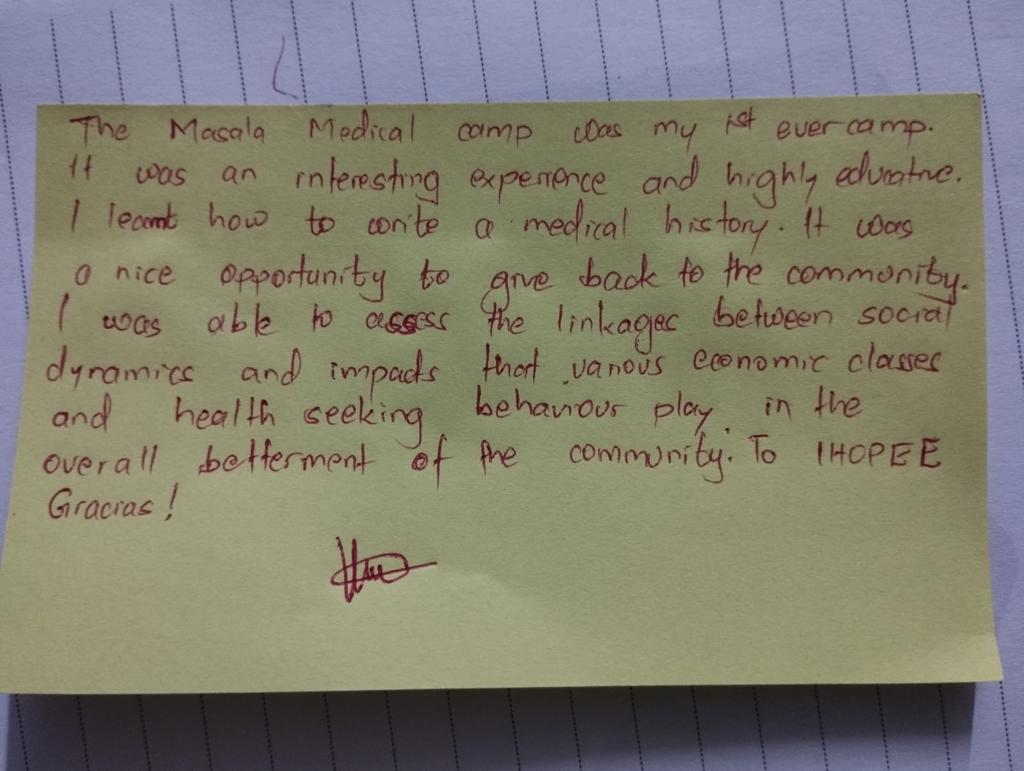 The Masala Medical camp was my 1st ever camp.
It was an interesting experience and highly educative.
I learnt how to write a medical history. It was
a nice opportunity to give back to the community.
I was able to assess the linkages between social
dynamics and impacts that various economic classes
and health seeking behaviour play in the
overall betterment of the community. To IHOPEE
Gracias!